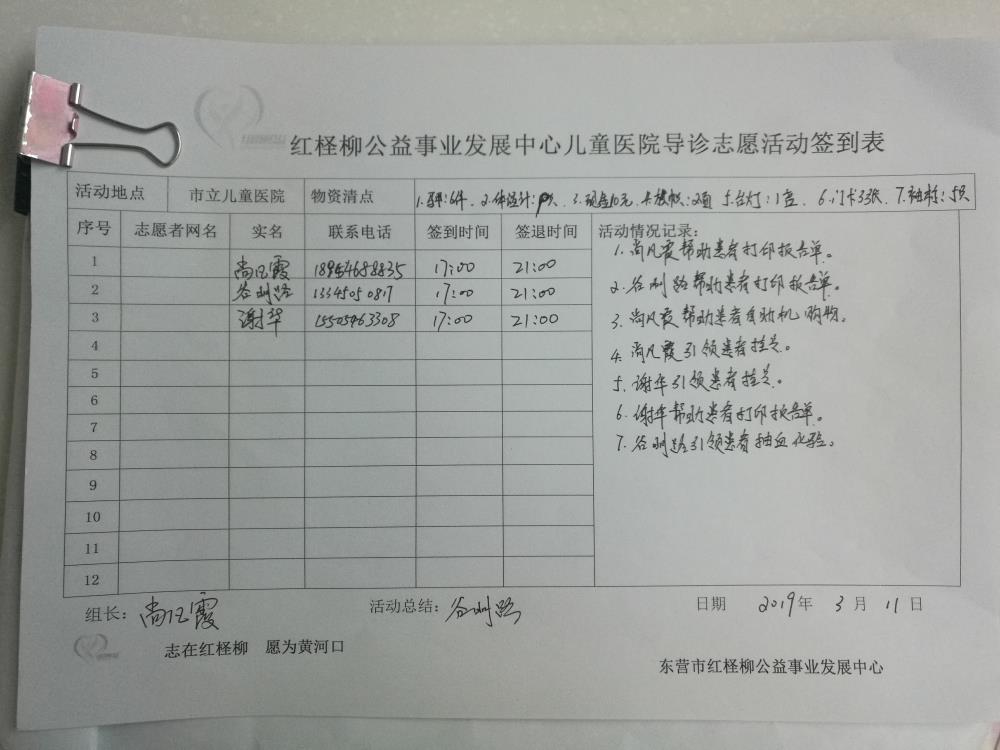 红柽柳公益事业发展中心儿童医院导诊志愿活动签到表
活动地点 市立儿童医院 物资清点 3.现金10元 5.台灯:1盏 6.门卡33张 7.袖标:5只
序号 志愿者网名 实名 联系电话 签到时间 签退时间 活动情况记录:
1 尚凡霞 17:00 21:00 1.尚凡霞帮助患者打印报告单。
2 谷明路 13345050817 17:00 21:00 2.谷明路帮助患者打印报告单。
3 谢华 15505463308 17:00 21:00 3.尚凡霞帮助患者自助机购物。
4 4.尚凡霞引领患者挂号。
5 5.谢华引领患者挂号。
6 6.谢华帮助患者打印报告单。
7 7.谷明路引领患者抽血化验。
8
9
10
11
12
组长: 尚凡霞 活动总结: 谷明路 日期 2019年 3月 11日
志在红柽柳 愿为黄河口
东营市红柽柳公益事业发展中心